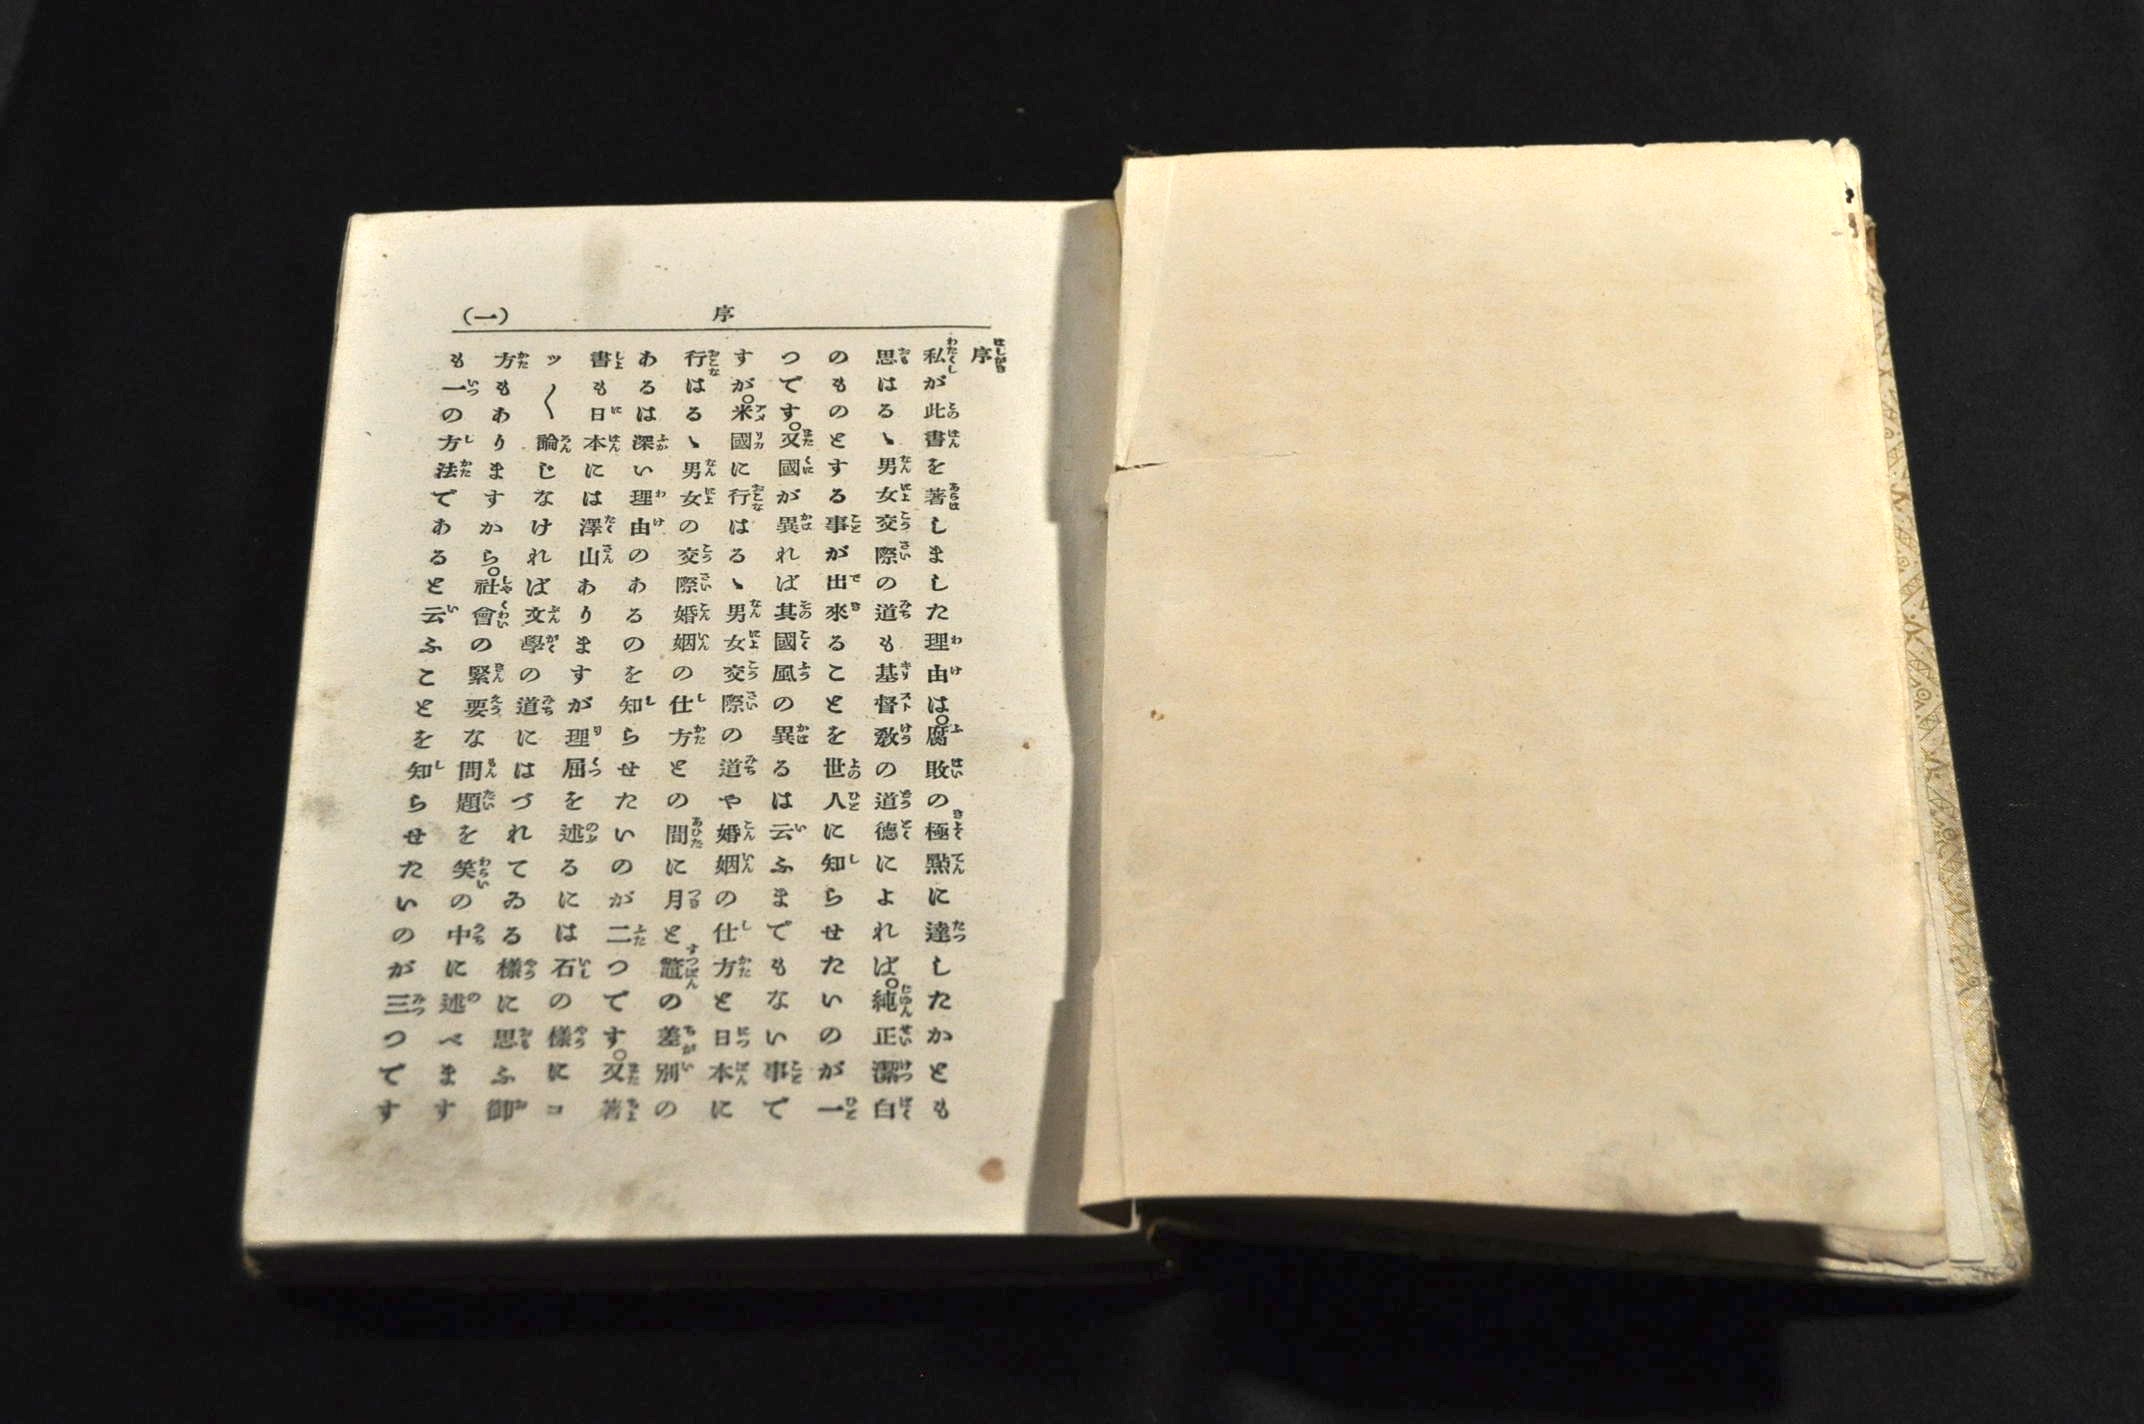 序
(一)
序
私が此書を著しました理由は。腐敗の極點に達したかとも
思はるゝ男女交際の道も基督教の道德によれば。純正潔白
のものとする事が出來ることを世人に知らせたいのが一
つです。又國が異れば其國風の異るは云ふまでもない事で
すが。米國に行はるゝ男女交際の道や婚姻の仕方と日本に
行はるゝ男女の交際婚姻の仕方との間に月と鼈の差別の
あるは深い理由のあるのを知らせたいのが二つです。又著
書も日本には澤山ありますが理屈を述るには石の樣にコ
ツ〱論じなければ文學の道にはづれてゐる樣に思ふ御
方もありますから。社會の緊要な問題を笑の中に述べます
も一の方法であると云ふことを知らせたいのが三つです